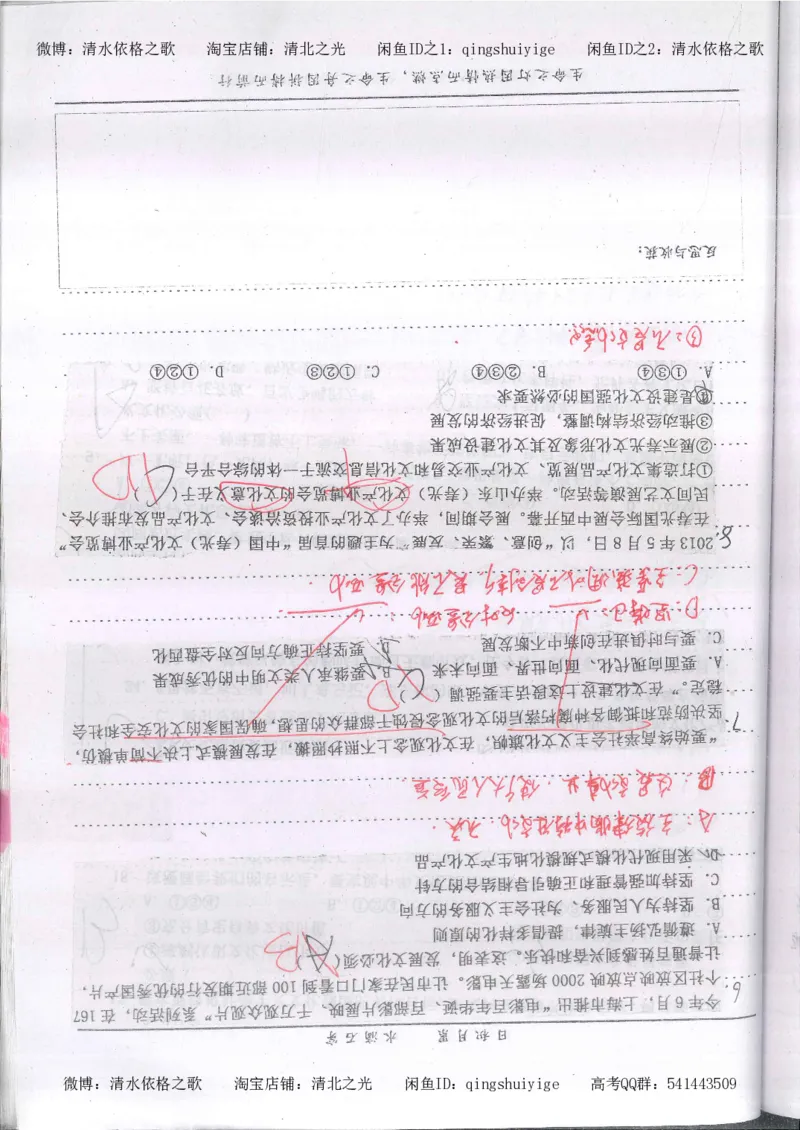 微博：清水依格之歌 淘宝店铺：清北之光 闲鱼ID之1：qingshuiyige 闲鱼ID之2：清水依格之歌
日积月累 水滴石穿
6.
今年 6 月，上海市推出“电影百年华诞、百部影片展映、千万观众观片”系列活动，在 167
个社区放映点放映 2000 场露天电影。让市民在家门口看到 100 部近期发行的优秀国产片，
让普通百姓感到兴奋和快乐。这表明，发展文化必须( )
A. 遵循弘扬主旋律、提倡多样化的原则
B. 坚持为人民服务、为社会主义服务的方向
C. 坚持加强管理和正确引导相结合的方针
D. 采用现代化模式规模化地生产文化产品
7.
“要始终高举社会主义文化旗帜，在文化观念上不照抄照搬，在发展模式上决不简单模仿，
坚决防范和抵御各种腐朽落后的文化观念侵蚀干部群众的思想，确保国家的文化安全和社会
稳定。”在文化建设上这段话主要强调( )
A. 要面向现代化、面向世界、面向未来 B. 要继承人类文明中的优秀成果
C. 要与时俱进在创新中不断发展 D. 要坚持正确方向反对全盘西化
D: 坚持正 反对全盘西化
8.
2013 年 5 月 8 日，以“创意、繁荣、发展”为主题的首届“中国（寿光）文化产业博览会”
在寿光国际会展中西开幕。展会期间，举办了文化产业投资洽谈会、文化产品发布推介会、
民间文艺展演等活动。举办山东（寿光）文化产业博览会的文化意义在于( )
①打造集文化产品展览、文化产业交易和文化信息交流于一体的综合平台
②展示寿光文化形象及其文化建设成果
③推动经济结构调整，促进经济的发展
④是建设文化强国的必然要求
A. ①③④ B. ②③④ C. ①②③ D. ①②④
③：不是文化意义
反思与收获：
生命之灯因热情而点燃，生命之舟因拼搏而前行
微博：清水依格之歌 淘宝店铺：清北之光 闲鱼ID：qingshuiyige 高考QQ群：541443509